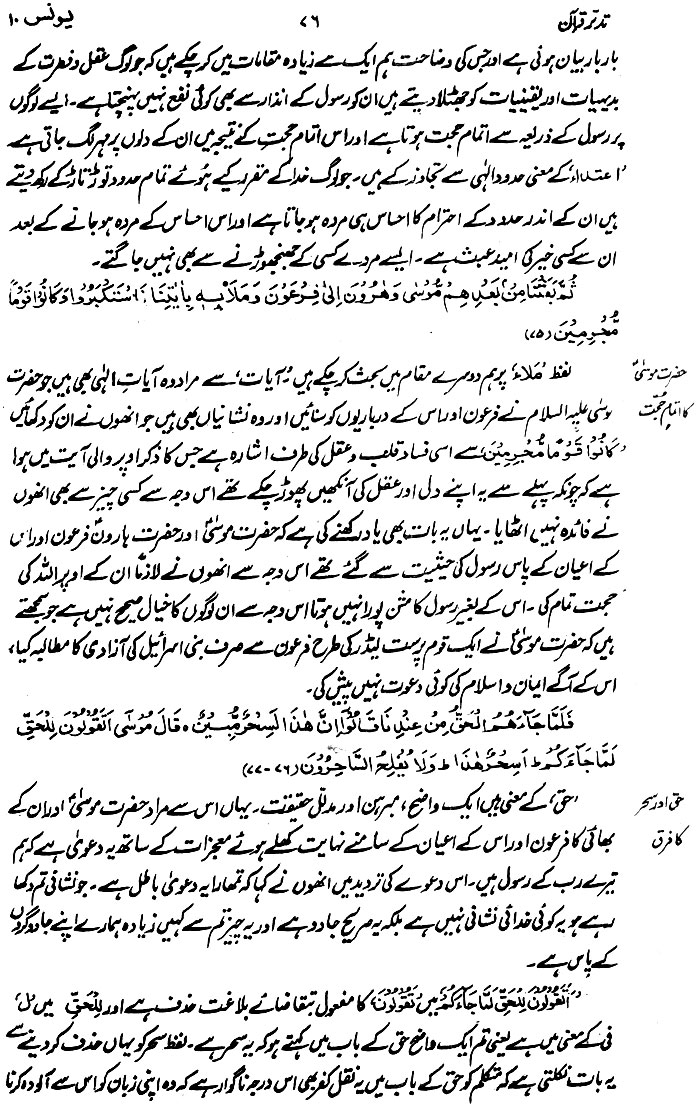 تدبّر قرآن ۷۶ یونس ۱۰
بار بار بیان ہوئی ہے اور جس کی وضاحت ہم ایک سے زیادہ مقامات میں کر چکے ہیں کہ جو لوگ عقل و فطرت کے
بدیہیات اور یقینیات کو جھٹلا دیتے ہیں ان کو رسول کے انذار سے بھی کوئی نفع نہیں پہنچتا ہے۔ ایسے لوگوں
پر رسول کے ذریعہ سے اتمام حجت ہوتا ہے اور اس اتمام حجت کے نتیجہ میں ان کے دلوں پر مہر لگ جاتی ہے
'اعتداء' کے معنی حدود الٰہی سے تجاوز کے ہیں۔ جو لوگ خدا کے مقرر کیے ہوئے تمام حدود توڑ تاڑ کے رکھ دیتے
ہیں ان کے اندر حدود کے احترام کا احساس ہی مردہ ہو جاتا ہے اور اس احساس کے مردہ ہو جانے کے بعد
ان سے کسی خیر کی امید عبث ہے۔ ایسے مردے کسی کے جھنجھوڑنے سے بھی نہیں جاگتے۔
ثُمَّ بَعَثْنَا مِنْۢ بَعْدِهِمْ مُّوْسٰى وَهٰرُوْنَ اِلٰى فِرْعَوْنَ وَمَلَا۟ئِهٖ بِاٰيٰتِنَا فَاسْتَكْبَرُوْا وَكَانُوْا قَوْمًا
مُّجْرِمِيْنَ (۷۵)
لفظ 'ملاء' پر ہم دوسرے مقام میں بحث کر چکے ہیں۔ 'آیات' سے مراد وہ آیات الٰہی بھی ہیں جو حضرت
حضرت موسیٰؑ
موسیٰ علیہ السلام نے فرعون اور اس کے درباریوں کو سنائیں اور وہ نشانیاں بھی ہیں جو انھوں نے ان کو دکھائیں
کا اتمام حجت
'كَانُوْا قَوْمًا مُّجْرِمِيْنَ' سے اسی فساد قلب و عقل کی طرف اشارہ ہے جس کا ذکر اوپر والی آیت میں ہوا
ہے کہ چونکہ پہلے سے یہ اپنے دل اور عقل کی آنکھیں پھوڑ چکے تھے اس وجہ سے کسی چیز سے بھی انھوں
نے فائدہ نہیں اٹھایا۔ یہاں یہ بات بھی یاد رکھنے کی ہے کہ حضرت موسیٰؑ اور حضرت ہارونؑ فرعون اور اس
کے اعیان کے پاس رسول کی حیثیت سے گئے تھے اس وجہ سے انھوں نے لازماً ان کے اوپر اللہ کی
حجت تمام کی۔ اس کے بغیر رسول کا مشن پورا نہیں ہوتا اس وجہ سے ان لوگوں کا خیال صحیح نہیں ہے جو سمجھتے
ہیں کہ حضرت موسیٰؑ نے ایک قوم پرست لیڈر کی طرح فرعون سے صرف بنی اسرائیل کی آزادی کا مطالبہ کیا،
اس کے آگے ایمان و اسلام کی کوئی دعوت نہیں پیش کی۔
فَلَمَّا جَآءَهُمُ الْحَقُّ مِنْ عِنْدِنَا قَالُوْٓا اِنَّ هٰذَا لَسِحْرٌ مُّبِيْنٌ ۝ قَالَ مُوْسٰٓى اَتَقُوْلُوْنَ لِلْحَقِّ
لَمَّا جَآءَكُمْ ؕ اَسِحْرٌ هٰذَا ؕ وَلَا يُفْلِحُ السّٰحِرُوْنَ (۷۶-۷۷)
'حق' کے معنی ہیں ایک واضح، مبرہن اور مدلل حقیقت۔ یہاں اس سے مراد حضرت موسیٰؑ اور ان کے
حق اور سحر
بھائی کا فرعون اور اس کے اعیان کے سامنے نہایت کھلے ہوئے معجزات کے ساتھ یہ دعویٰ ہے کہ ہم
کا فرق
تیرے رب کے رسول ہیں۔ اس دعوے کی تردید میں انھوں نے کہا کہ تمہارا یہ دعویٰ باطل ہے۔ جو نشانی تم دکھا
رہے ہو یہ کوئی خدائی نشانی نہیں ہے بلکہ یہ صریح جادو ہے اور یہ چیز تم سے کہیں زیادہ ہمارے اپنے جادوگروں
کے پاس ہے۔
'اَتَقُوْلُوْنَ لِلْحَقِّ لَمَّا جَآءَكُمْ' میں 'تَقُوْلُوْنَ' کا مفعول بتقاضائے بلاغت حذف ہے اور لِلْحَقِّ میں 'ل'
فی کے معنی میں ہے یعنی تم ایک واضح حق کے باب میں کہتے ہو کہ یہ سحر ہے۔ لفظ سحر کو یہاں حذف کر دینے سے
یہ بات نکلتی ہے کہ متکلم کو حق کے باب میں یہ نقل کفر بھی اس درجہ ناگوار ہے کہ وہ اپنی زبان کو اس سے آلودہ کرنا